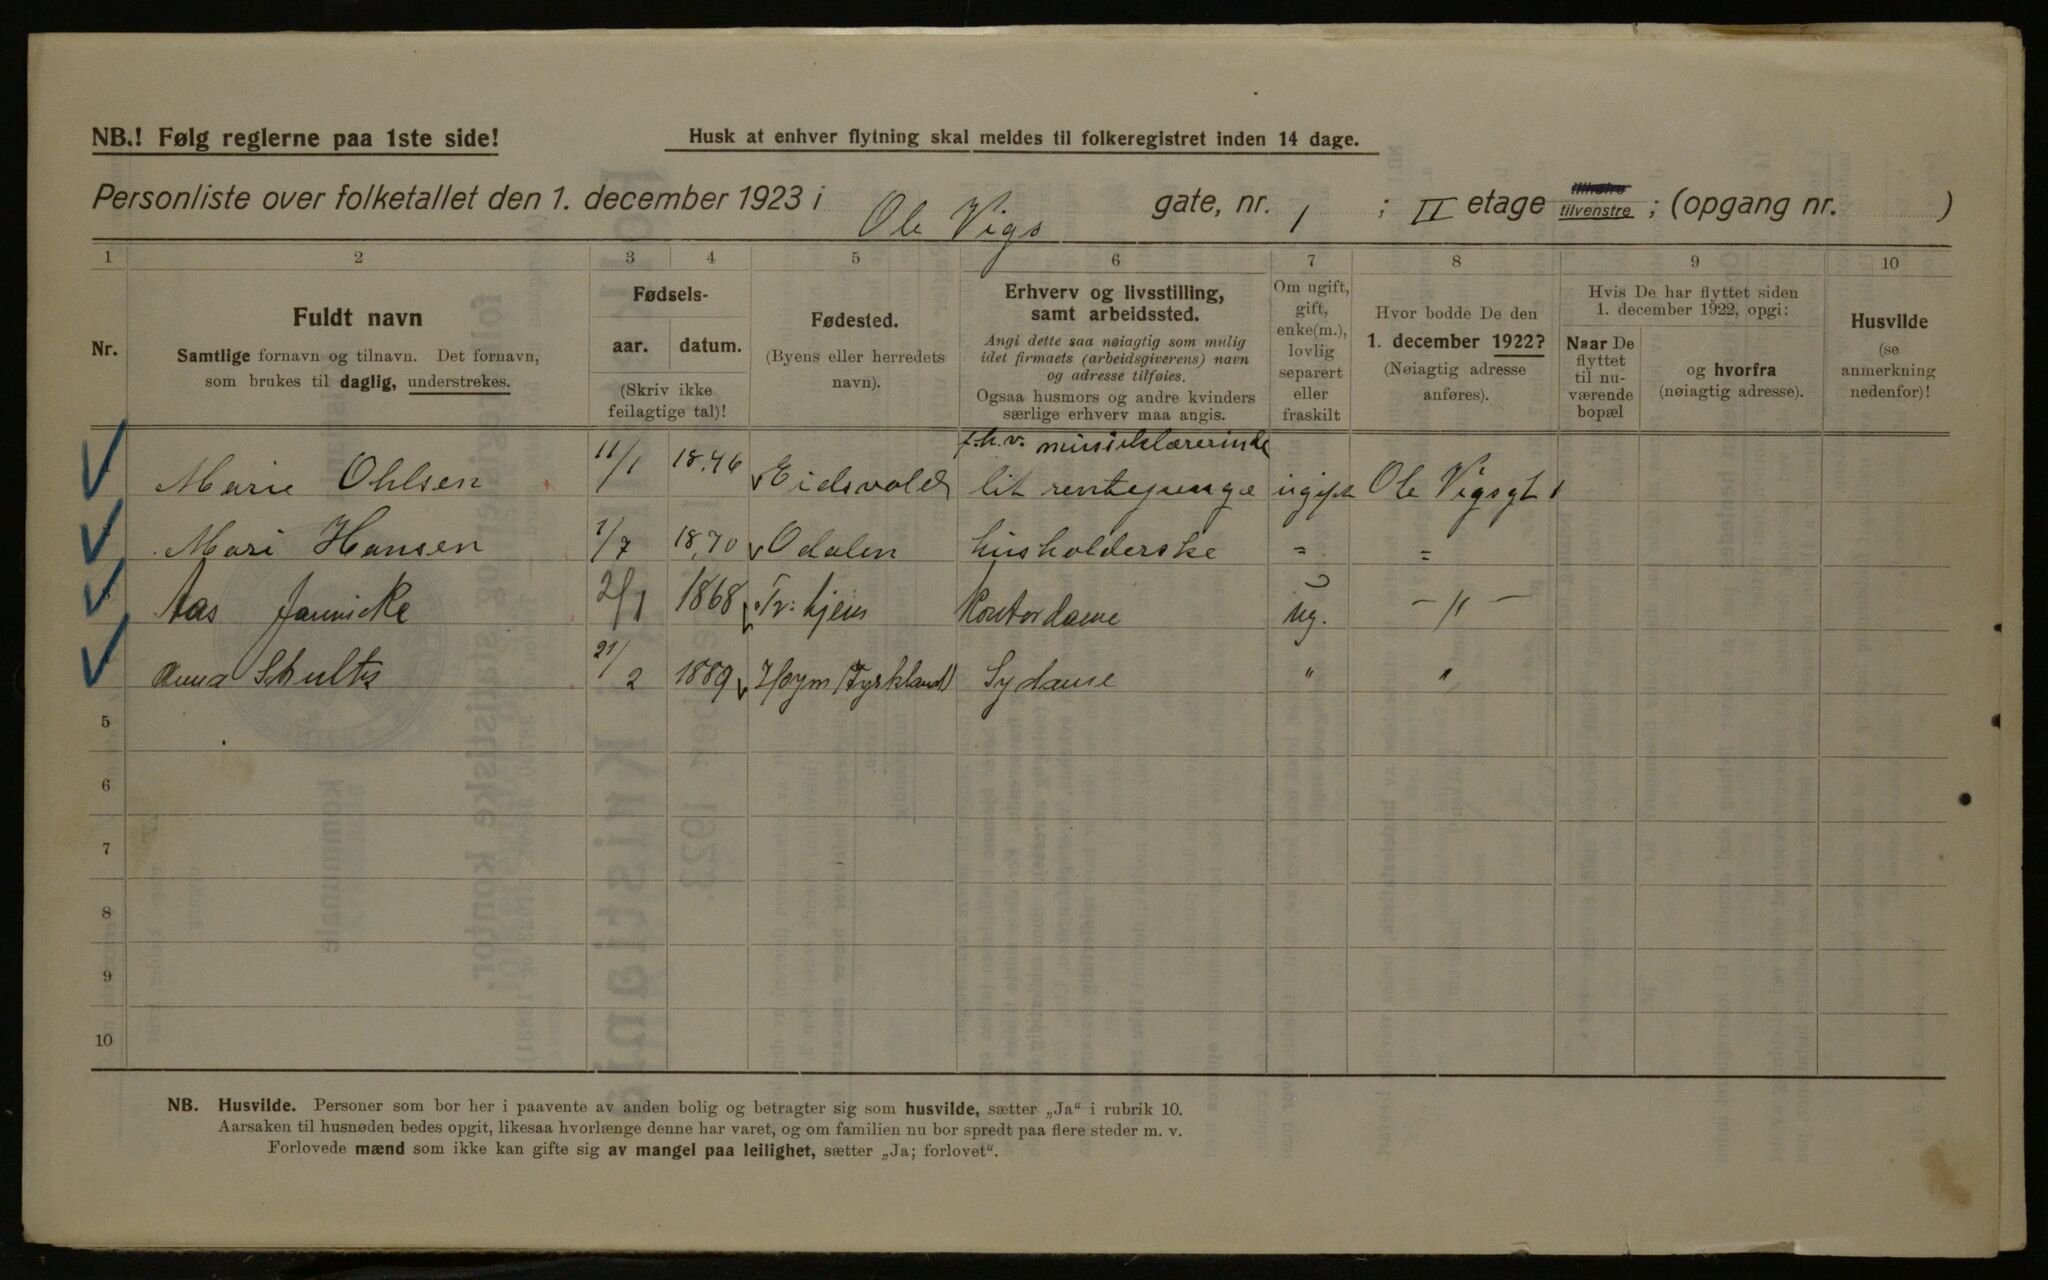 NB.! Følg reglerne paa 1ste side!
Husk at enhver flytning skal meldes til folkeregistret inden 14 dage.
Personliste over folketallet den 1. december 1923 i Ole Vigs gate, nr. 1 ; II etage tilhøire tilvenstre ; (opgang nr. )
1 2 3 4 5 6 7 8 9 10
Nr.
Fuldt navn
Samtlige fornavn og tilnavn. Det fornavn,
som brukes til daglig, understrekes.
Fødsels-
aar. datum.
(Skriv ikke
feilagtige tal)!
Fødested.
(Byens eller herredets
navn).
Erhverv og livsstilling,
samt arbeidssted.
Angi dette saa nøiagtig som mulig
idet firmaets (arbeidsgiverens) navn
og adresse tilføies.
Ogsaa husmors og andre kvinders
særlige erhverv maa angis.
Om ugift,
gift,
enke(m.),
lovlig
separert
eller
fraskilt
Hvor bodde De den
1. december 1922?
(Nøiagtig adresse
anføres).
Hvis De har flyttet siden
1. december 1922, opgi:
Naar De
flyttet
til nu-
værende
bopæl
og hvorfra
(nøiagtig adresse).
Husvilde
(se
anmerkning
nedenfor)!
f.h.v. musiklærerinde
Marie Ohlsen 11/1 1846 Eidsvold lit rentepenge ugift Ole Vigsgt 1
Mari Hansen 1/7 1870 Odalen husholderske " =
Aas Jannicke 2/1 1868 Tr.hjem Kontordame ug. – " –
Anna Schultz 21/2 1889 (Tyskland) Sydame " "
5
6
7
8
9
10
NB. Husvilde. Personer som bor her i paavente av anden bolig og betragter sig som husvilde, sætter „Ja“ i rubrik 10.
Aarsaken til husnøden bedes opgit, likesaa hvorlænge denne har varet, og om familien nu bor spredt paa flere steder m. v.
Forlovede mænd som ikke kan gifte sig av mangel paa leilighet, sætter „Ja; forlovet“.